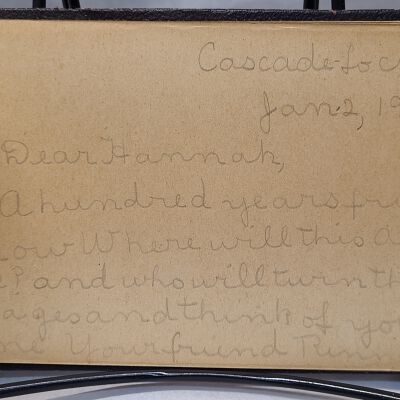 Cascade-Loc
Jan 2, 19
Dear Hannah,
A hundred years fr
ow Where will this A
e? and who will turn th
ages and think of yo
me Your friend